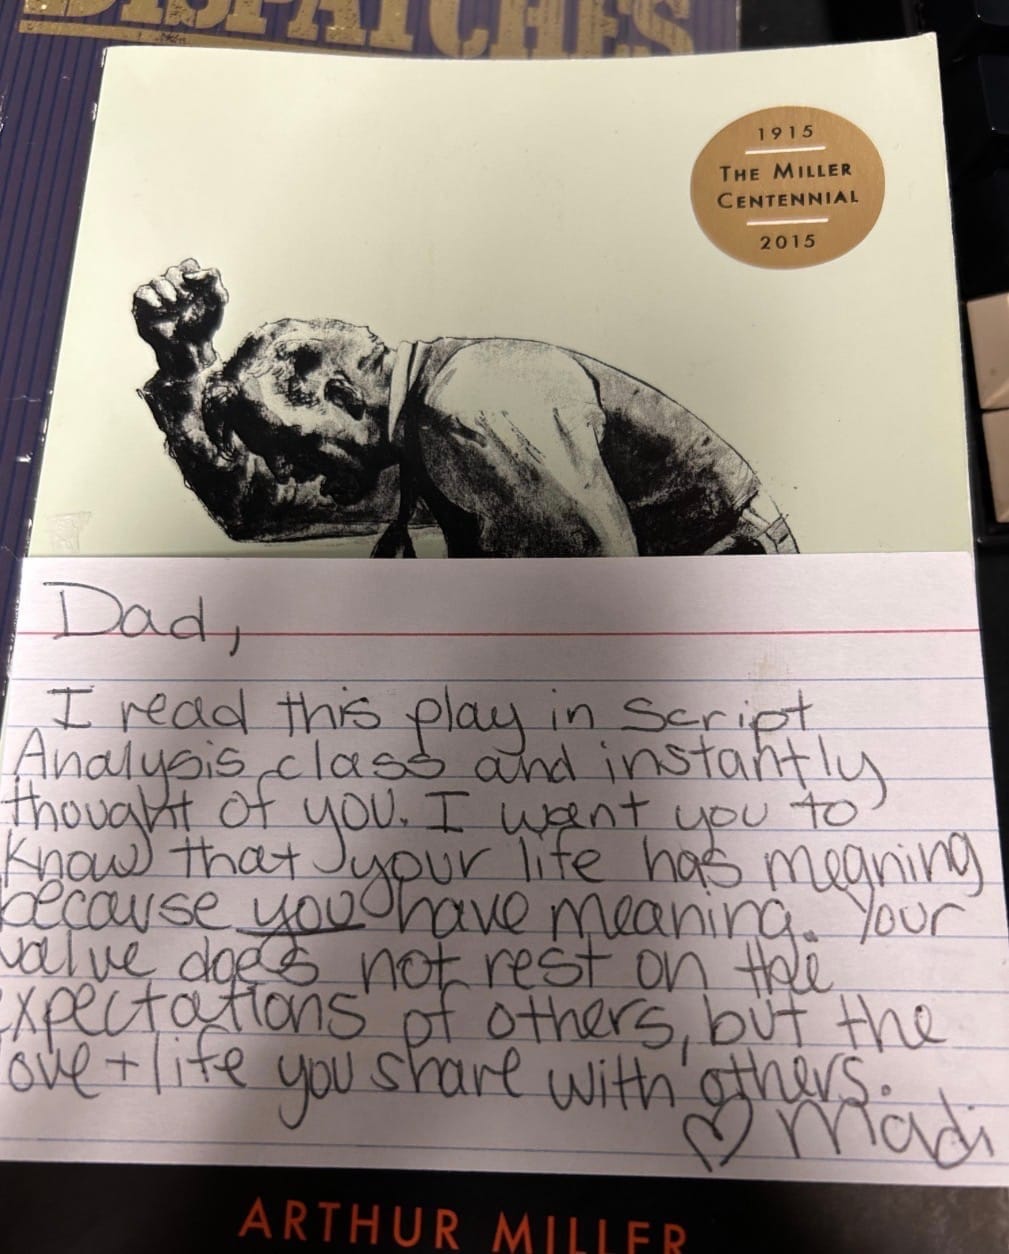 DISPATCHES
1915
THE MILLER
CENTENNIAL
2015
Dad,
I read this play in Script
Analysis class and instantly
thought of you. I want you to
know that your life has meaning
because you have meaning. Your
value does not rest on the
expectations of others, but the
love + life you share with others.
♡ Madi
ARTHUR MILLER